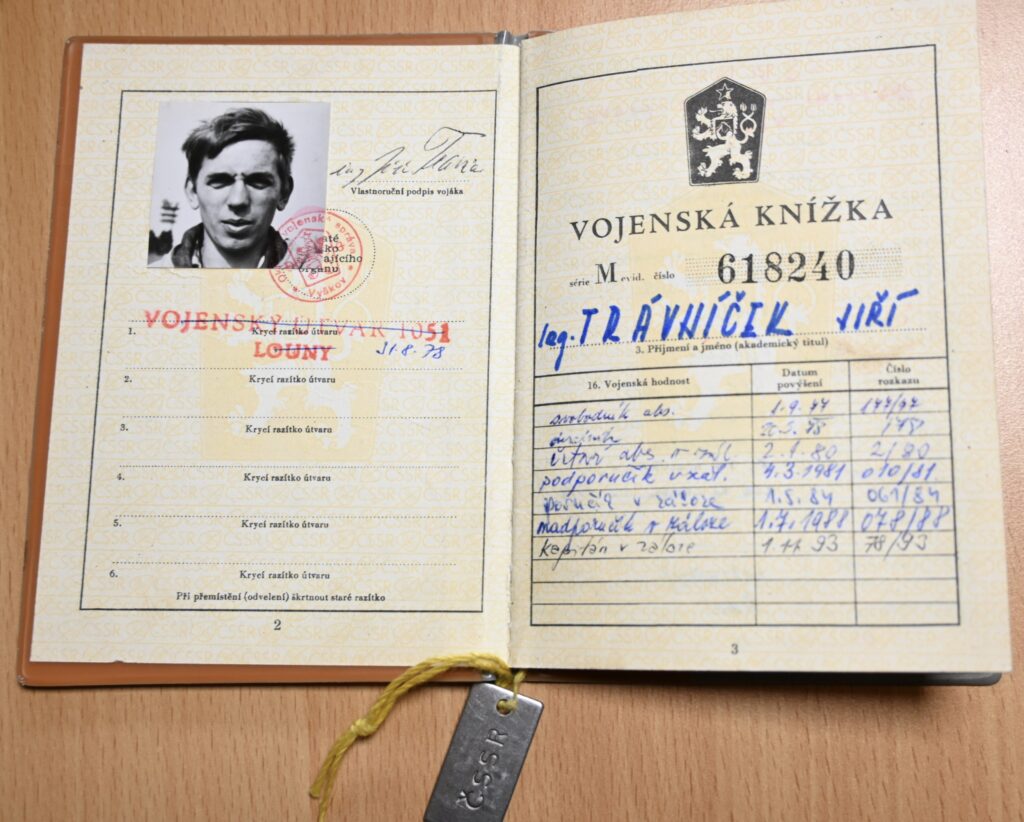 ing Jiří Tráva
Vlastnoruční podpis vojáka
vojenská správa
Vyškov
até
ko
ajícího
orgánu
VOJENSKÝ ÚTVAR 1051
1. Krycí razítko útvaru
LOUNY 31.8.78
2. Krycí razítko útvaru
3. Krycí razítko útvaru
4. Krycí razítko útvaru
5. Krycí razítko útvaru
6. Krycí razítko útvaru
Při přemístění (odvelení) škrtnout staré razítko
2
VOJENSKÁ KNÍŽKA
série M evid. číslo 618240
Ing. TRÁVNÍČEK JIŘÍ
3. Příjmení a jméno (akademický titul)
16. Vojenská hodnost Datum povýšení Číslo rozkazu
svobodník abs. 1.9.77 177/77
78
četař abs. v zál. 2.1.80 2/80
podporučík v zál. 4.3.1981 010/81
poručík v záloze 1.5.84 061/84
nadporučík v záloze 1.7.1988 078/88
kapitán v záloze 1.11 93 78/93
3
ČSSR